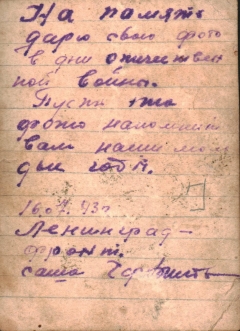 На память
дарю свою фото
в дни отечествен
ной войны.
Пусть это
фото напомнит
вам наши моло
дые годы.
43г.
Ленинград–
фронт.
Саша